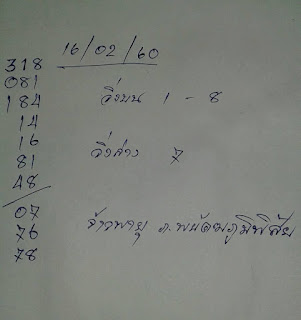 16/02/60
318
081
184
14
16
81
48
07
76
78
วิ่งบน 1 - 8
วิ่งล่าง 7
จ้าวพายุ ภ.พยัคฆภูมิพิสัย